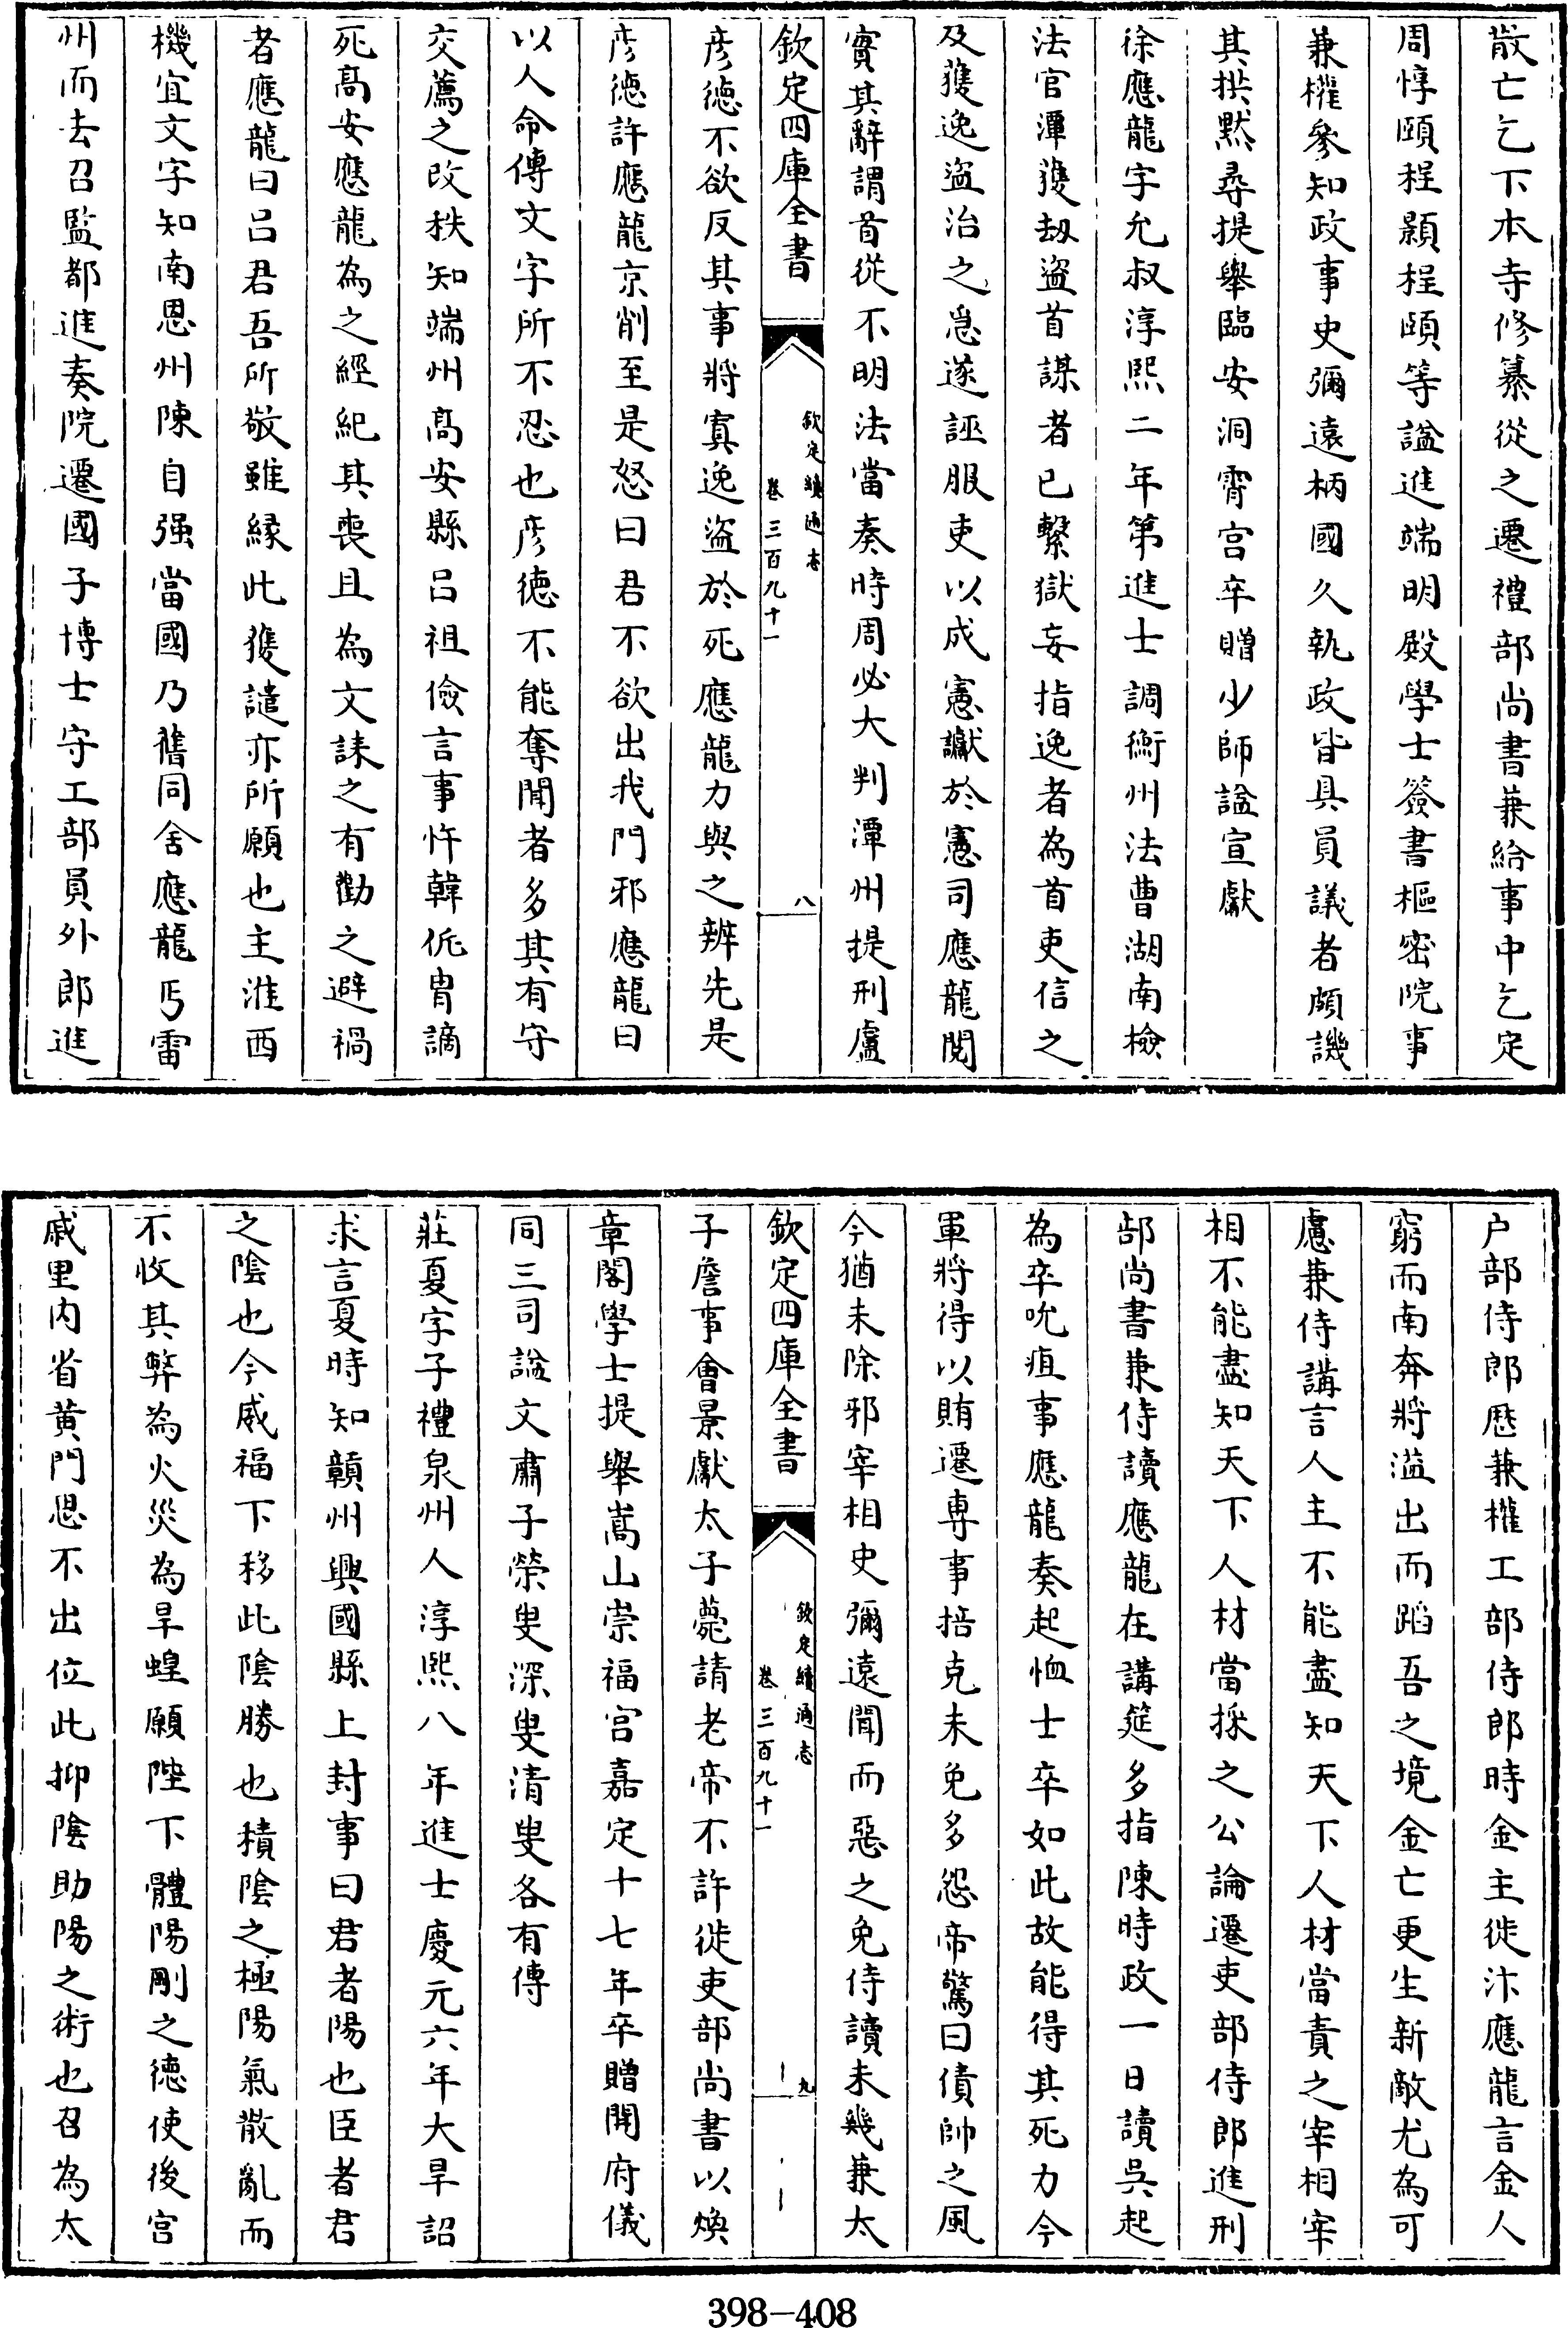 散亡乞下本寺修纂從之遷禮部尚書兼給事中乞定
周惇頤程顥程頤等諡進端明殿學士簽書樞密院事
兼權參知政事史彌遠柄國久執政皆具員議者頗譏
其拱黙尋提舉臨安洞霄宫卒贈少師諡宣獻
徐應龍字允叔淳熙二年第進士調衡州法曹湖南檢
法官潭獲劫盜首謀者已繫獄妄指逸者為首吏信之
及獲逸盜治之急遂誣服吏以成憲讞於憲司應龍閱
實其辭謂首從不明法當奏時周必大判潭州提刑盧
欽定四庫全書
欽定續通志
卷三百九十一
八
彦徳不欲反其事將寘逸盜於死應龍力與之辨先是
彦徳許應龍京削至是怒曰君不欲出我門邪應龍曰
以人命傳文字所不忍也彦徳不能奪聞者多其有守
交薦之改秩知端州髙安縣吕祖儉言事忤韓侂胄謫
死髙安應龍為之經紀其喪且為文誄之有勸之避禍
者應龍曰吕君吾所敬雖縁此獲譴亦所願也主淮西
機宜文字知南恩州陳自强當國乃舊同舍應龍丐雷
州而去召監都進奏院遷國子博士守工部員外郎進
户部侍郎歴兼權工部侍郎時金主徙汴應龍言金人
窮而南奔將溢出而蹈吾之境金亡更生新敵尤為可
慮兼侍講言人主不能盡知天下人材當責之宰相宰
相不能盡知天下人材當採之公論遷吏部侍郎進刑
部尚書兼侍讀應龍在講筵多指陳時政一日讀吳起
為卒吮疽事應龍奏起恤士卒如此故能得其死力今
軍將得以賄遷專事掊克未免多怨帝驚曰債帥之風
今猶未除邪宰相史彌遠聞而惡之免侍讀未幾兼太
欽定四庫全書
欽定續通志
卷三百九十一
九
子詹事會景獻太子薨請老帝不許徙吏部尚書以煥
章閣學士提舉嵩山崇福宫嘉定十七年卒贈開府儀
同三司諡文肅子榮叟深叟清叟各有傳
莊夏字子禮泉州人淳熙八年進士慶元六年大旱詔
求言夏時知贛州興國縣上封事曰君者陽也臣者君
之陰也今威福下移此陰勝也積陰之極陽氣散亂而
不收其弊為火災為旱蝗願陛下體陽剛之徳使後宫
戚里内省黄門思不出位此抑陰助陽之術也召為太
398-408